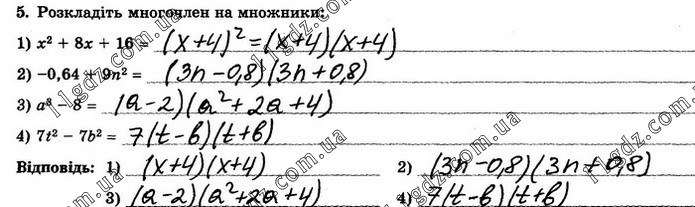 5. Розкладіть многочлен на множники:
1) x² + 8x + 16 = (x+4)² = (x+4)(x+4)
2) −0,64 + 9n² = (3n−0,8)(3n+0,8)
3) a³ − 8 = (a−2)(a²+2a+4)
4) 7t² − 7b² = 7(t−b)(t+b)
Відповідь: 1) (x+4)(x+4) 2) (3n−0,8)(3n+0,8)
3) (a−2)(a²+2a+4) 4) 7(t−b)(t+b)
11gdz.com.ua